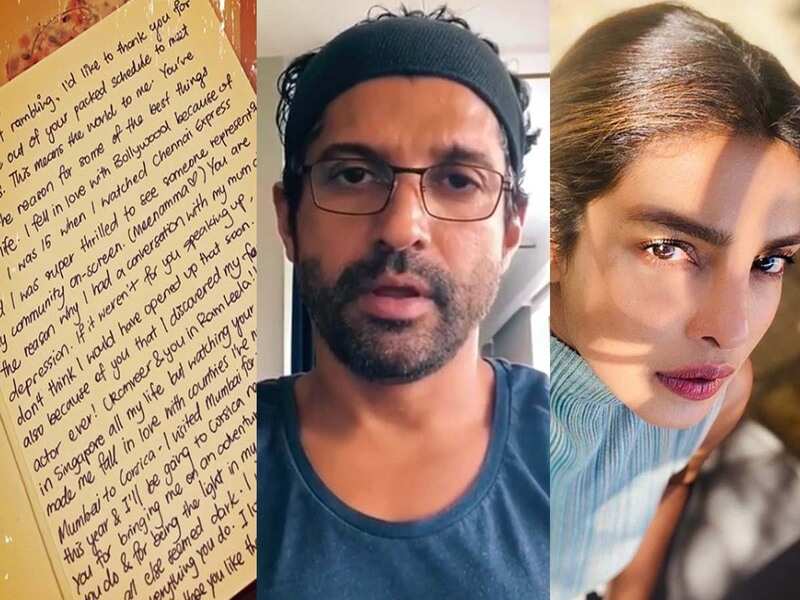 rambling, I'd like to thank you for
out of your packed schedule to meet
. This means the world to me. You're
the reason for some of the best things
life. I fell in love with Bollywood because of
I was 15 when I watched Chennai Express
I was super thrilled to see someone represent
community on-screen. (Meenamma♡) You are
the reason why I had a conversation with my mum
depression. If it weren't for you speaking up
don't think I would have opened up that soon.
also because of you that I discovered my
actor ever! (Ranveer & you in Ram Leela!!
in Singapore all my life but watching your
made me fall in love with countries I've
Mumbai to Corsica - I visited Mumbai for
this year & I'll be going to Corsica
you for bringing me on an adventure
you do & for being the light in my
all else seemed dark. I
everything you do. I
hope you like